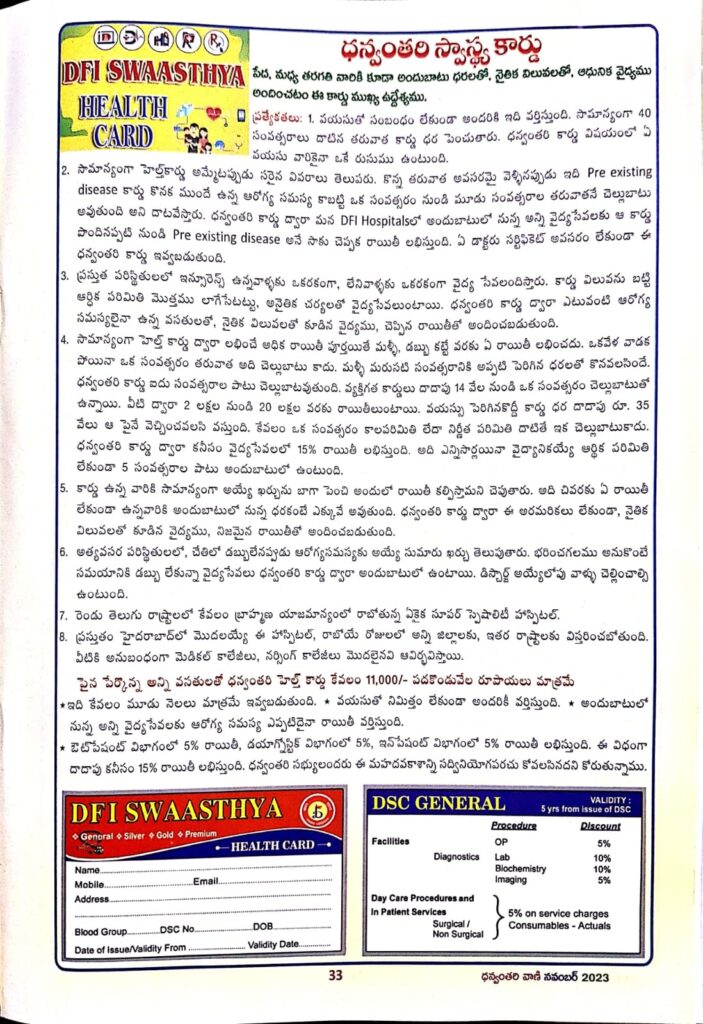 DFI SWAASTHYA
HEALTH
CARD
ధన్వంతరి స్వాస్థ్య కార్డు
పేద, మధ్య తరగతి వారికి కూడా అందుబాటు ధరలతో, నైతిక విలువలతో, ఆధునిక వైద్యము
అందించటం ఈ కార్డు ముఖ్య ఉద్దేశ్యము.
ప్రత్యేకతలు: 1. వయసుతో సంబంధం లేకుండా అందరికి ఇది వర్తిస్తుంది. సామాన్యంగా 40
సంవత్సరాలు దాటిన తరువాత కార్డు ధర పెంచుతారు. ధన్వంతరి కార్డు విషయంలో ఏ
వయసు వారికైనా ఒకే రుసుము ఉంటుంది.
2. సామాన్యంగా హెల్త్‌కార్డు అమ్మేటప్పుడు సరైన వివరాలు తెలుపరు. కొన్న తరువాత అవసరమై వెళ్ళినప్పుడు ఇది Pre existing
disease కార్డు కొనక ముందే ఉన్న ఆరోగ్య సమస్య కాబట్టి ఒక సంవత్సరం నుండి మూడు సంవత్సరాల తరువాతనే చెల్లుబాటు
అవుతుంది అని దాటవేస్తారు. ధన్వంతరి కార్డు ద్వారా మన DFI Hospitalsలో అందుబాటులో నున్న అన్ని వైద్యసేవలకు ఆ కార్డు
పొందినప్పటి నుండి Pre existing disease అనే సాకు చెప్పక రాయితీ లభిస్తుంది. ఏ డాక్టరు సర్టిఫికెట్ అవసరం లేకుండా ఈ
ధన్వంతరి కార్డు ఇవ్వబడుతుంది.
3. ప్రస్తుత పరిస్థితులలో ఇన్సూరెన్స్ ఉన్నవాళ్ళకు ఒకరకంగా, లేనివాళ్ళకు ఒకరకంగా వైద్య సేవలందిస్తారు. కార్డు విలువను బట్టి
ఆర్ధిక పరిమితి మొత్తము లాగేసేటట్టు, అనైతిక చర్యలతో వైద్యసేవలుంటాయి. ధన్వంతరి కార్డు ద్వారా ఎటువంటి ఆరోగ్య
సమస్యలైనా ఉన్న వసతులతో, నైతిక విలువలతో కూడిన వైద్యము, చెప్పిన రాయితీతో అందించబడుతుంది.
4. సామాన్యంగా హెల్త్ కార్డు ద్వారా లభించే ఆధిక రాయితీ పూర్తయితే మళ్ళీ, డబ్బు కట్టే వరకు ఏ రాయితీ లభించదు. ఒకవేళ వాడక
పోయినా ఒక సంవత్సరం తరువాత అది చెల్లుబాటు కాదు. మళ్ళీ మరుసటి సంవత్సరానికి అప్పటి పెరిగిన ధరలతో కొనవలసిందే.
ధన్వంతరి కార్డు ఐదు సంవత్సరాల పాటు చెల్లుబాటవుతుంది. వ్యక్తిగత కార్డులు దాదాపు 14 వేల నుండి ఒక సంవత్సరం చెల్లుబాటుతో
ఉన్నాయి. వీటి ద్వారా 2 లక్షల నుండి 20 లక్షల వరకు రాయితీలుంటాయి. వయస్సు పెరిగినకొద్దీ కార్డు ధర దాదాపు రూ. 35
వేలు ఆ పైనే వెచ్చించవలసి వస్తుంది. కేవలం ఒక సంవత్సరం కాలపరిమితి లేదా నిర్ణీత పరిమితి దాటితే ఇక చెల్లుబాటుకాదు.
ధన్వంతరి కార్డు ద్వారా కనీసం వైద్యసేవలలో 15% రాయితీ లభిస్తుంది. అది ఎన్నిసార్లయినా వైద్యానికయ్యే ఆర్థిక పరిమితి
లేకుండా 5 సంవత్సరాల పాటు అందుబాటులో ఉంటుంది.
5. కార్డు ఉన్న వారికి సామాన్యంగా అయ్యే ఖర్చును బాగా పెంచి అందులో రాయితీ కల్పిస్తామని చెపుతారు. అది చివరకు ఏ రాయితీ
లేకుండా ఉన్నవారికి అందుబాటులో నున్న ధరకంటే ఎక్కువే అవుతుంది. ధన్వంతరి కార్డు ద్వారా ఈ అరమరికలు లేకుండా, నైతిక
విలువలతో కూడిన వైద్యము, నిజమైన రాయితీతో అందించబడుతుంది.
6. అత్యవసర పరిస్థితులలో, చేతిలో డబ్బులేనప్పుడు ఆరోగ్యసమస్యకు అయ్యే సుమారు ఖర్చు తెలుపుతారు. భరించగలము అనుకొంటే
సమయానికి డబ్బు లేకున్నా వైద్యసేవలు ధన్వంతరి కార్డు ద్వారా అందుబాటులో ఉంటాయి. డిస్చార్జ్ అయ్యేలోపు వాళ్ళు చెల్లించాల్సి
ఉంటుంది.
7. రెండు తెలుగు రాష్ట్రాలలో కేవలం బ్రాహ్మణ యాజమాన్యంలో రాబోతున్న ఏకైక సూపర్ స్పెషాలిటీ హాస్పిటల్.
8. ప్రస్తుతం హైదరాబాద్‌లో మొదలయ్యే ఈ హాస్పిటల్, రాబోయే రోజులలో అన్ని జిల్లాలకు, ఇతర రాష్ట్రాలకు విస్తరించబోతుంది.
వీటికి అనుబంధంగా మెడికల్ కాలేజీలు, నర్సింగ్ కాలేజీలు మొదలైనవి ఆవిర్భవిస్తాయి.
పైన పేర్కొన్న అన్ని వసతులతో ధన్వంతరి హెల్త్ కార్డు కేవలం 11,000/- పదకొండువేల రూపాయలు మాత్రమే
★ఇది కేవలం మూడు నెలలు మాత్రమే ఇవ్వబడుతుంది. ★ వయసుతో నిమిత్తం లేకుండా అందరికీ వర్తిస్తుంది. ★ అందుబాటులో
నున్న అన్ని వైద్యసేవలకు ఆరోగ్య సమస్య ఎప్పటిదైనా రాయితీ వర్తిస్తుంది.
★ ఔట్‌పేషంట్ విభాగంలో 5% రాయితీ, డయాగ్నోస్టిక్ విభాగంలో 5%, ఇన్‌పేషంట్ విభాగంలో 5% రాయితీ లభిస్తుంది. ఈ విధంగా
దాదాపు కనీసం 15% రాయితీ లభిస్తుంది. ధన్వంతరి సభ్యులందరు ఈ మహదవకాశాన్ని సద్వినియోగపరచు కోవలసినదని కోరుతున్నాము.
DFI SWAASTHYA
❖ General ❖ Silver ❖ Gold ❖ Premium
HEALTH CARD
Name
Mobile Email
Address
Blood Group DSC No DOB
Date of Issue/Validity From Validity Date
DSC GENERAL VALIDITY :
5 yrs from issue of DSC
Procedure Discount
Facilities OP 5%
Diagnostics Lab 10%
Biochemistry 10%
Imaging 5%
Day Care Procedures and
In Patient Services
Surgical /
Non Surgical
5% on service charges
Consumables - Actuals
33
ధన్వంతరి వాణి నవంబర్ 2023